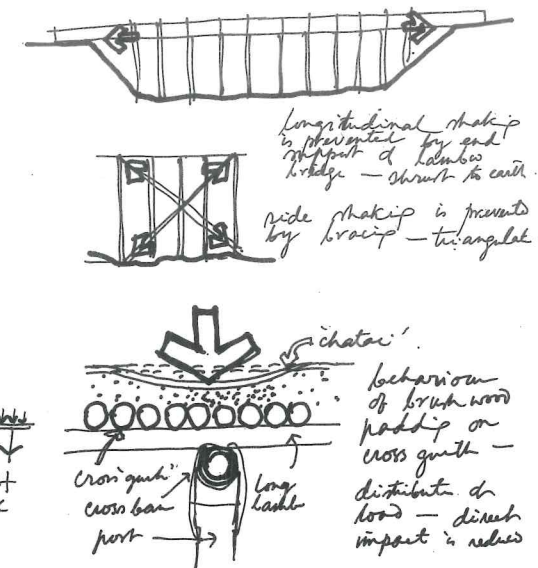 longitudinal shaking
is prevented by end
support of bamboo
bridge — thrust to earth.
side shaking is prevente
by bracing — triangulat
'chatai'.
behaviour
of brushwood
padding on
cross
distribute of
load — direct
impact is reduced
cross
cross bar
post
long